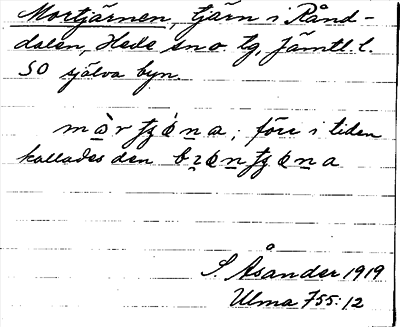 Mortjärnen, tjärn i Rånd-
dalen, Hede sn o. tg, Jämtl. l.
SO själva byn.
förr i tiden
kallades den
S. Åsander 1919
Ulma 755:12